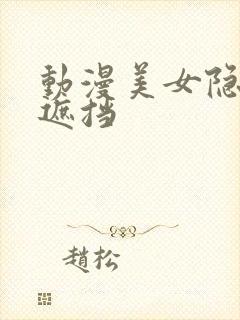 動漫美女隐
遮挡
趙松